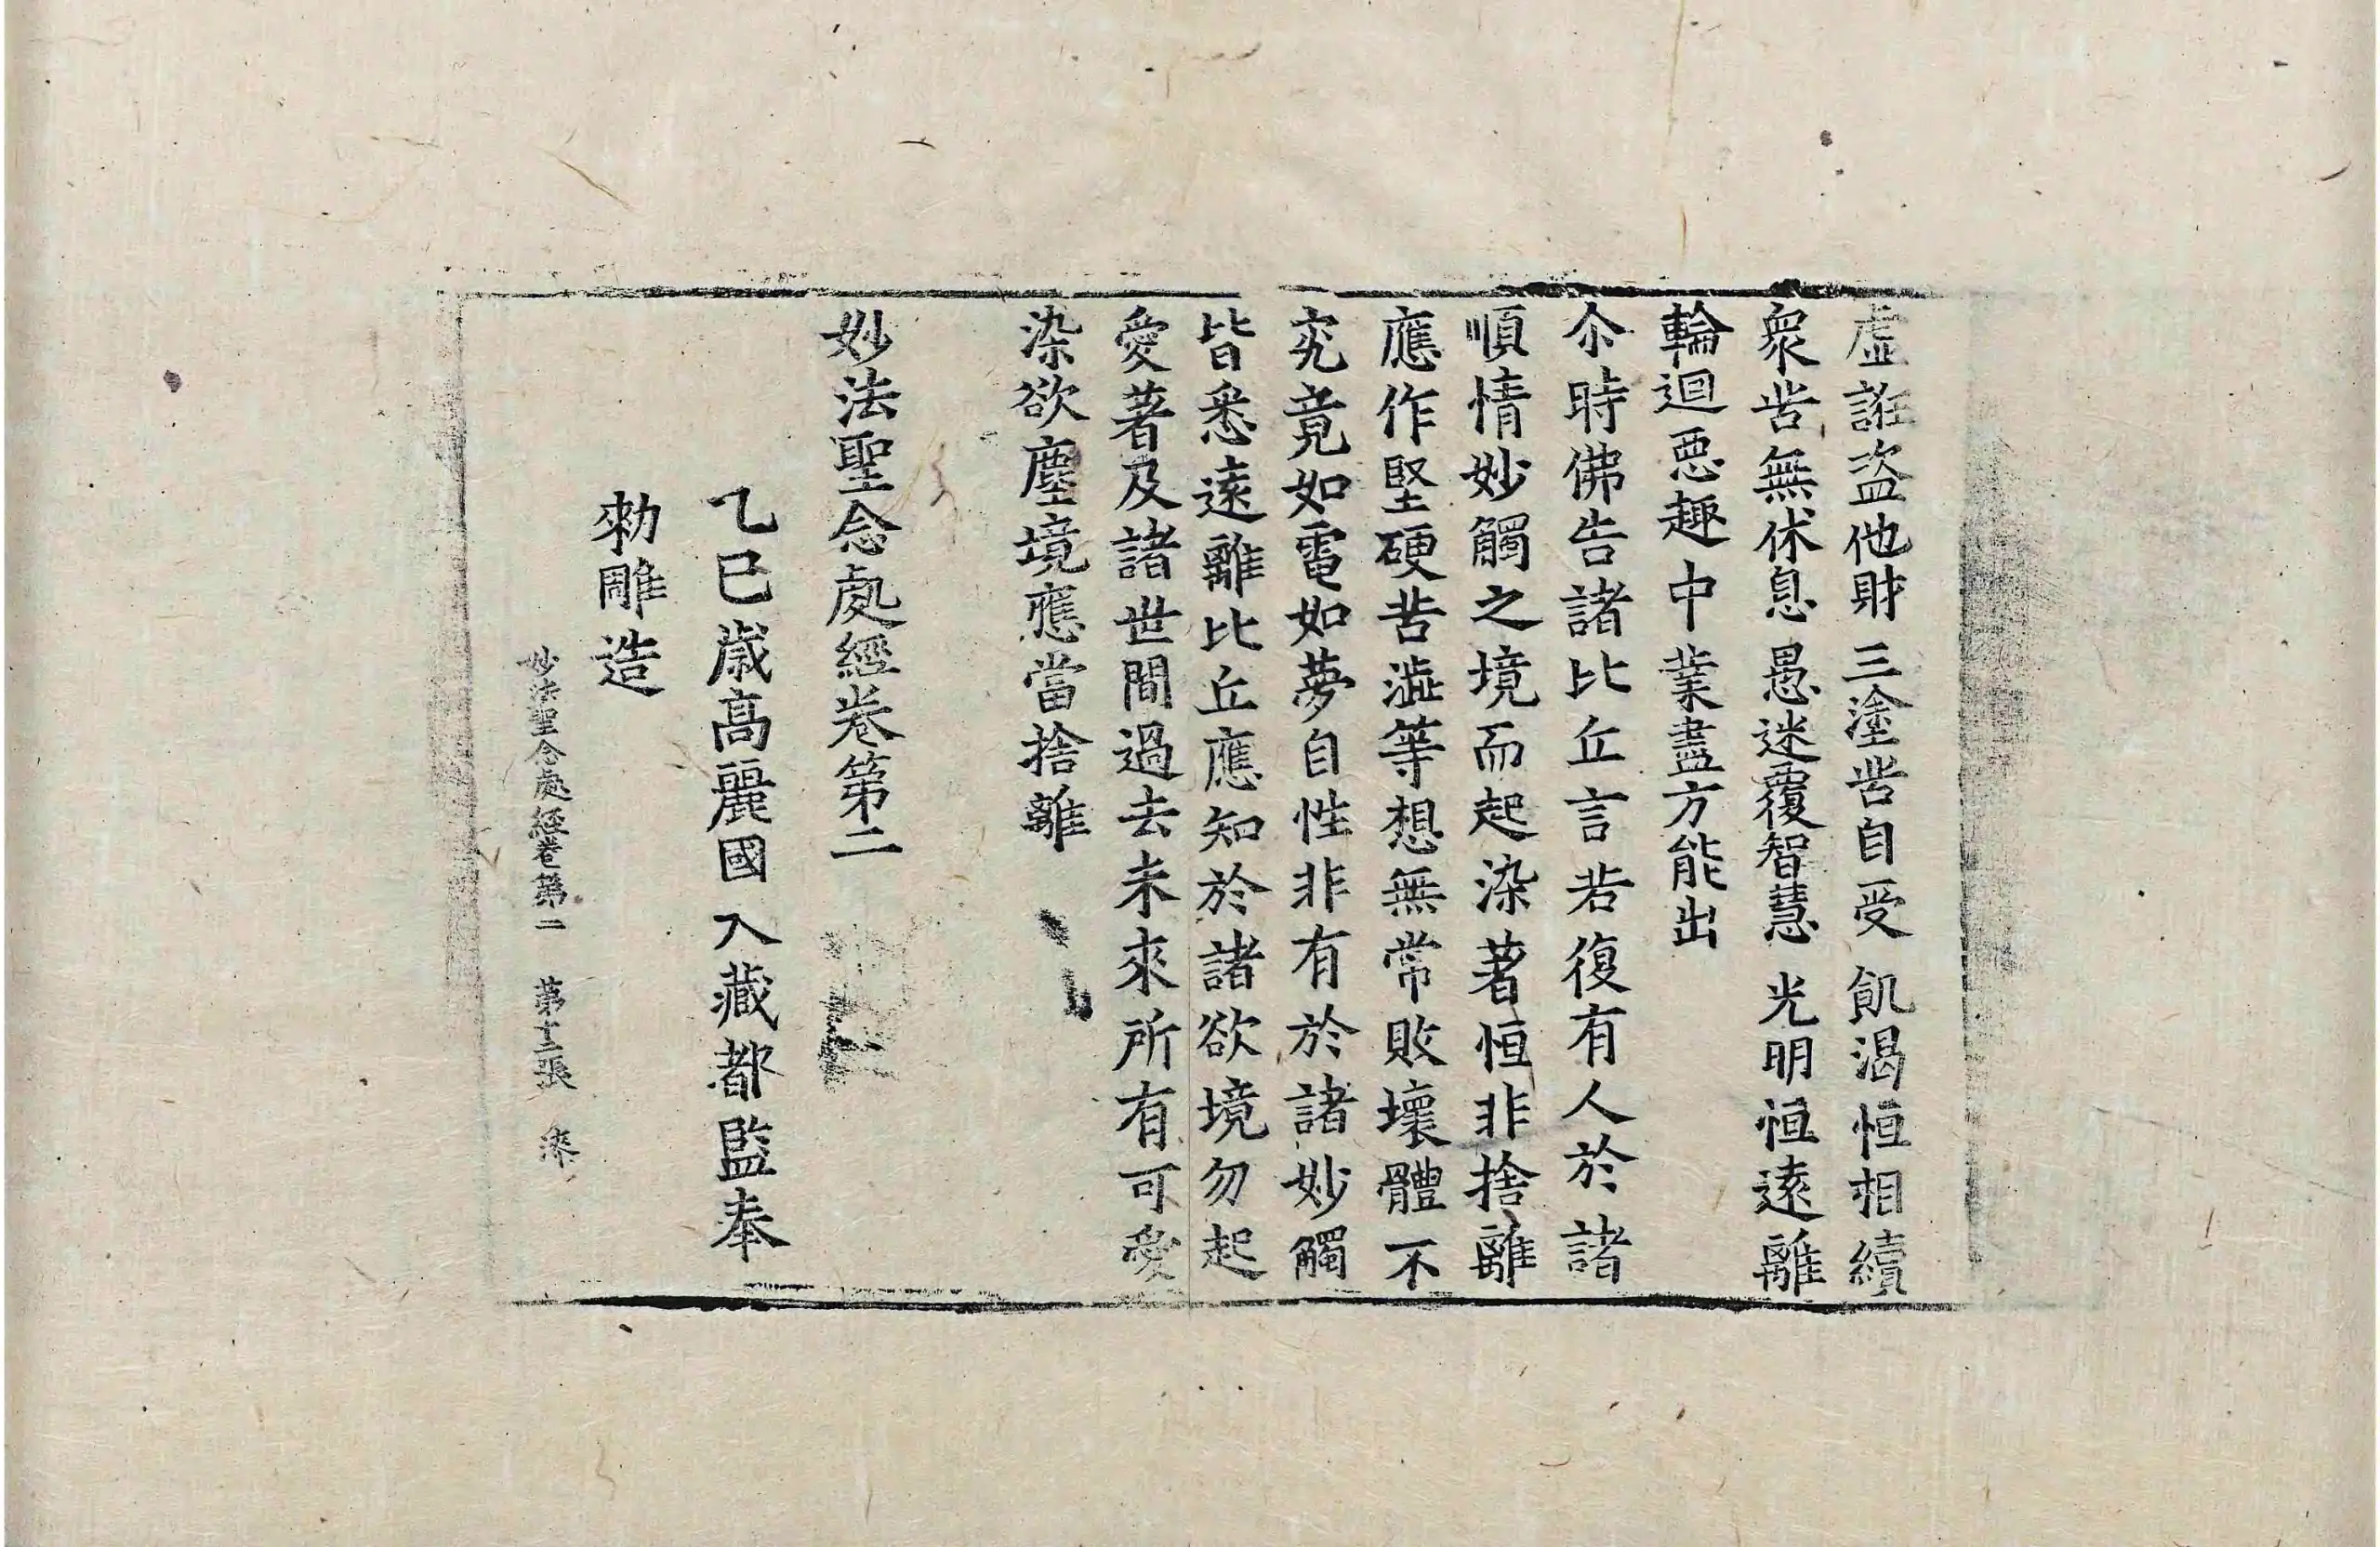 虛誑盜他財 三塗苦自受 飢渴恒相續
衆苦無休息 愚迷覆智慧 光明恒遠離
輪迴惡趣中 業盡方能出
尒時佛告諸比丘言若復有人於諸
順情妙觸之境而起染著恒非捨離
應作堅硬苦澁等想無常敗壞體不
究竟如電如夢自性非有於諸妙觸
皆悉遠離比丘應知於諸欲境勿起
愛著及諸世間過去未來所有可愛
染欲塵境應當捨離
妙法聖念處經卷第二
乙巳歲高麗國大藏都監奉
勑雕造
妙法聖念處經卷第二 第十二張